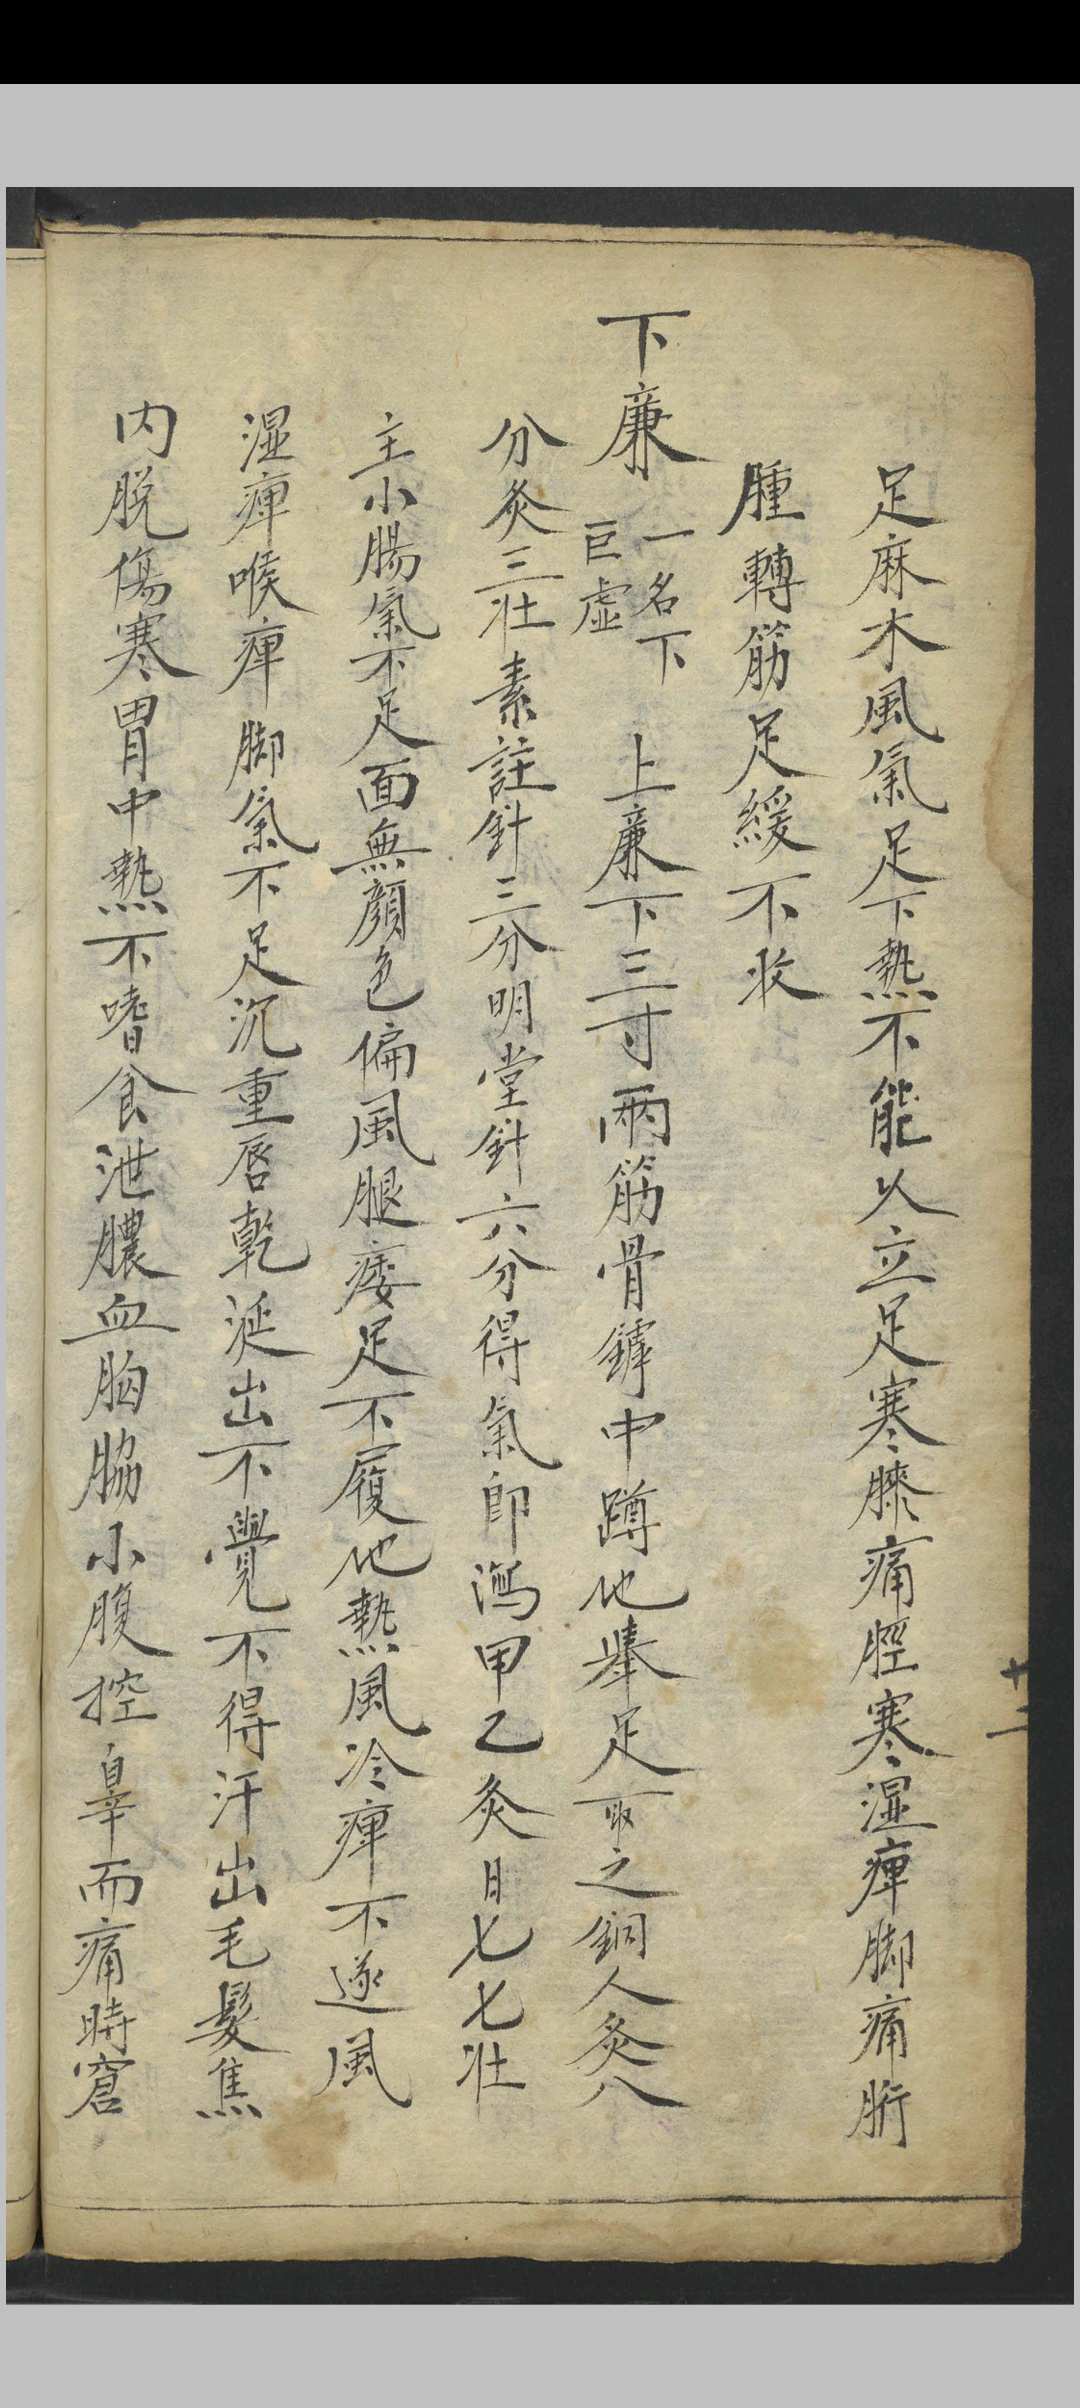 足麻木風氣足下熱不能以立足寒膝痛脛寒濕痺脚痛胻
腫轉筋足緩不收
下廉 一名下巨虛 上廉下三寸兩筋骨罅中蹲地舉足取之銅人灸八
分灸三壯素註針三分明堂針六分得氣即瀉甲乙灸日七七壯
主小腸氣不足面無顏色偏風腿痿足不履地熱風冷痺不遂風
湿痺喉痺脚氣不足沉重唇乾涎出不覺不得汗出毛髮焦
内脫傷寒胃中熱不嗜食泄膿血胸脇小腹控睾而痛時窘
十二